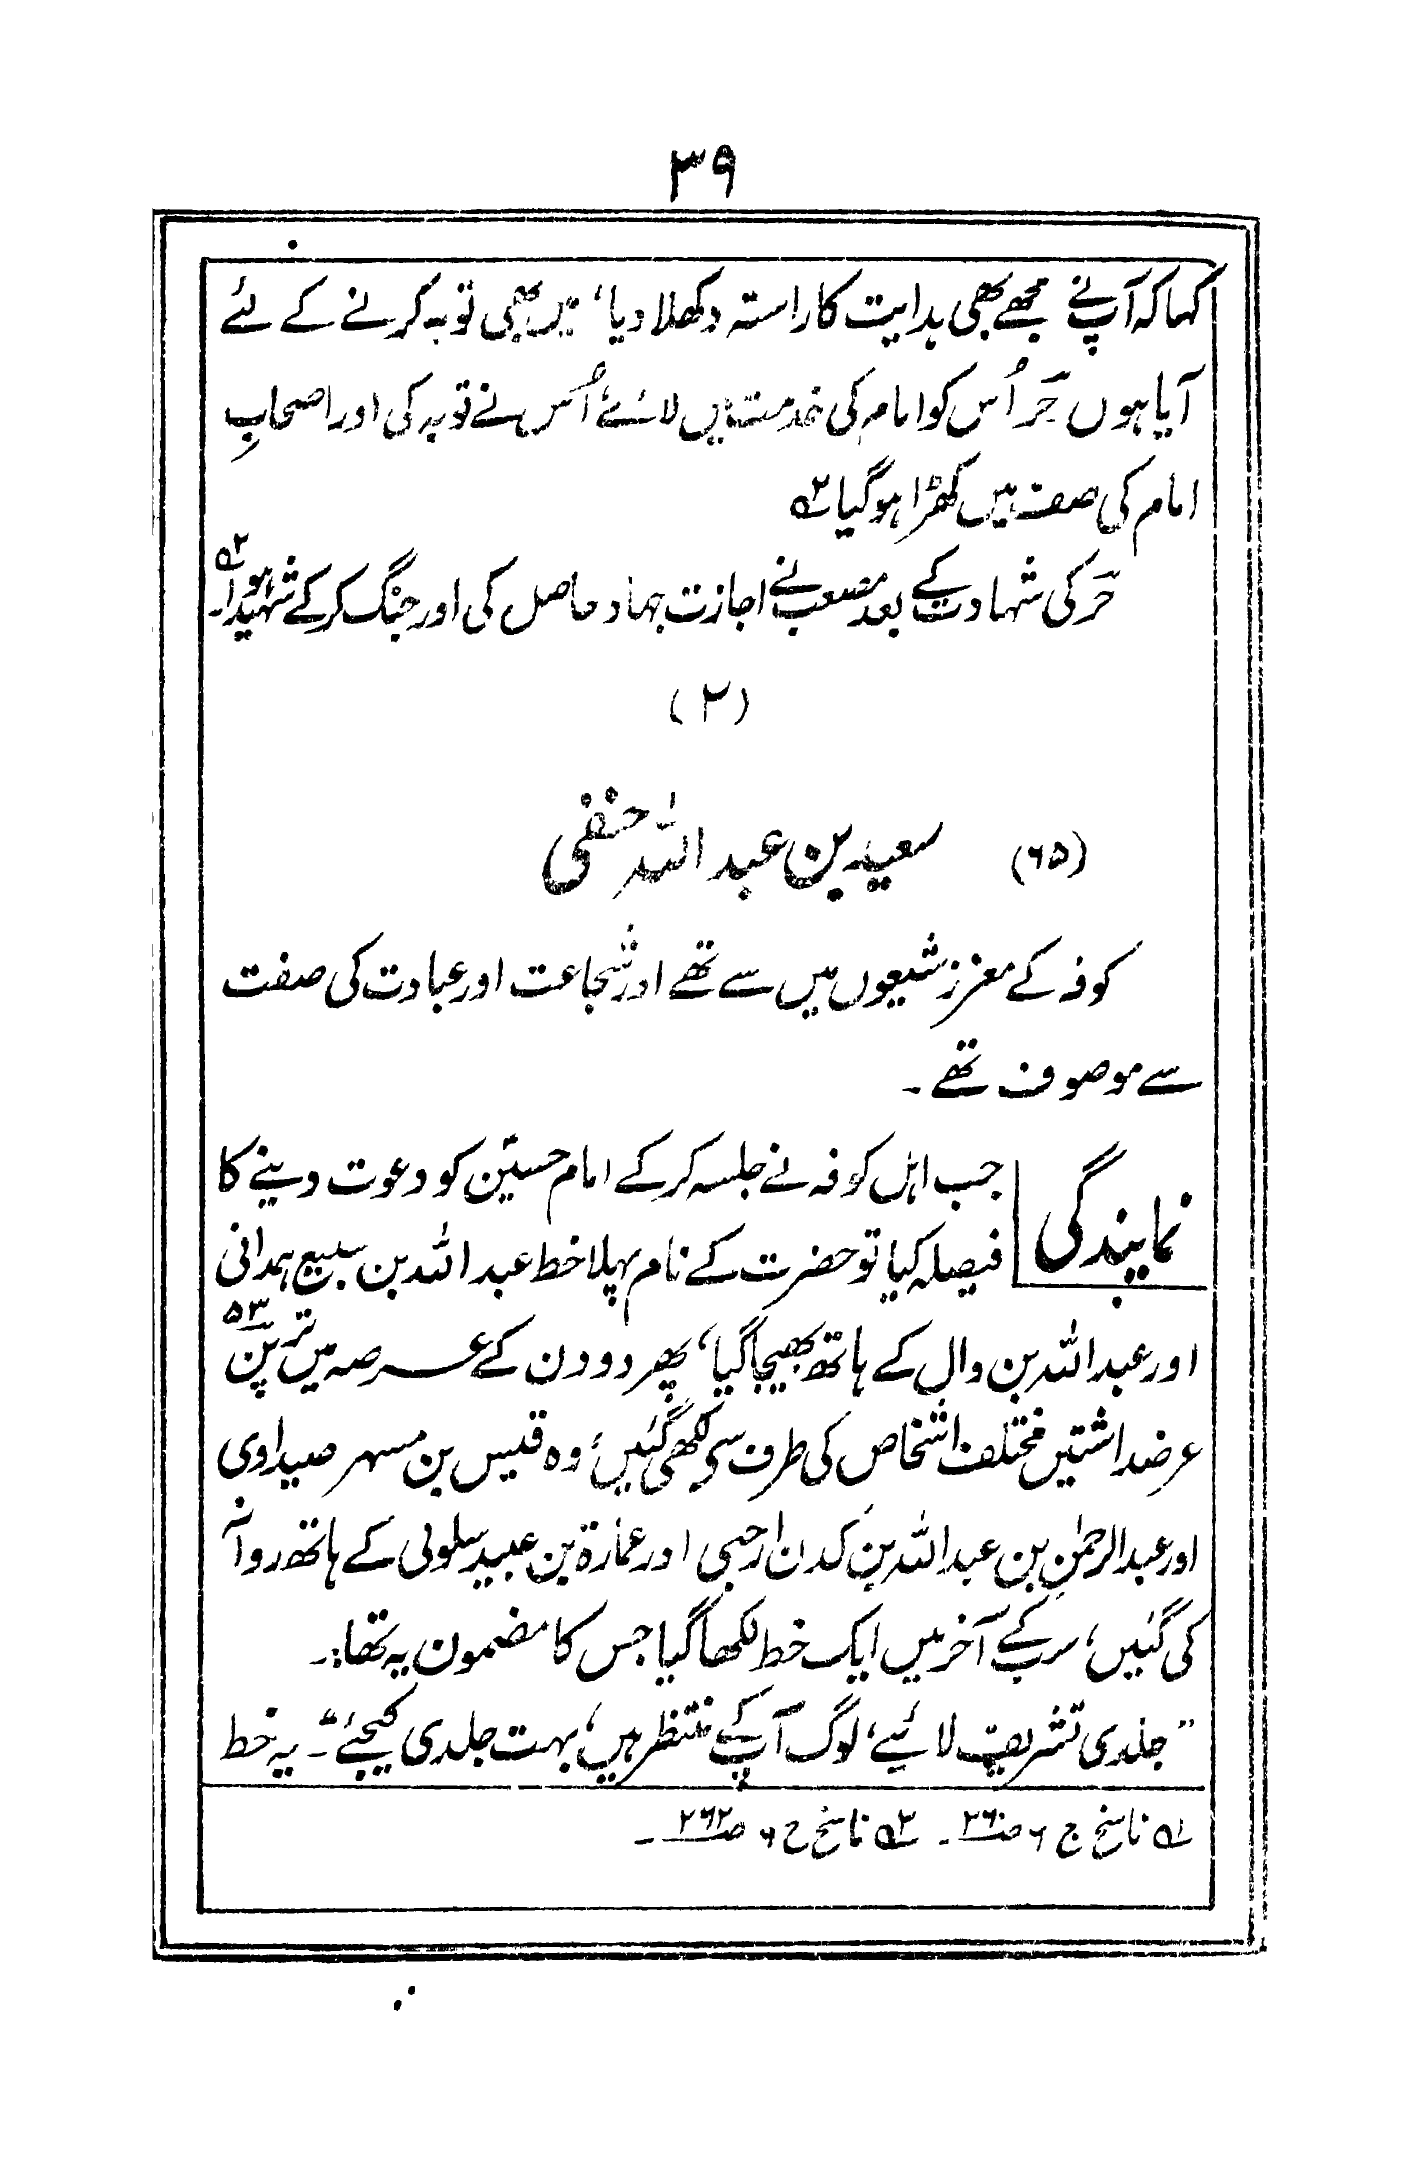 ۳۹
کہا کہ آپ نے مجھے بھی ہدایت کا راستہ دکھلا دیا، میں بھی توبہ کرنے کے لئے
آیا ہوں حر اُس کو امام کی خدمت میں لائے، اُس نے توبہ کی اور اصحابِ
امام کی صف میں کھڑا ہوگیا
حر کی شہادت کے بعد مصعب نے اجازت جہاد حاصل کی اور جنگ کر کے شہید ہوا۔
(۲)
(۶۵) سعید بن عبد اللہ حنفی
کوفہ کے معزز شیعوں میں سے تھے اور شجاعت اور عبادت کی صفت
سے موصوف تھے۔
نمایندگی
جب اہل کوفہ نے جلسہ کر کے امام حسینؑ کو دعوت دینے کا
فیصلہ کیا تو حضرت کے نام پہلا خط عبد اللہ بن سبیع ہمدانی
اور عبد اللہ بن وال کے ہاتھ بھیجا گیا، پھر دو دن کے عرصہ میں ترپن ۵۳
عرضداشتیں مختلف اشخاص کی طرف سے لکھی گئیں، وہ قیس بن مسہر صیداوی
اور عبد الرحمٰن بن عبد اللہ بن کدن ارحبی اور عمارۃ بن عبید سلولی کے ہاتھ روانہ
کی گئیں، سب کے آخر میں ایک خط لکھا گیا جس کا مضمون یہ تھا:۔
"جلدی تشریف لائیے، لوگ آپ کے منتظر ہیں، بہت جلدی کیجئے"۔ یہ خط
۱ ناسخ ج ۶ ص ۲۶۰۔ ۲ ناسخ ج ۶ ص ۲۶۲۔